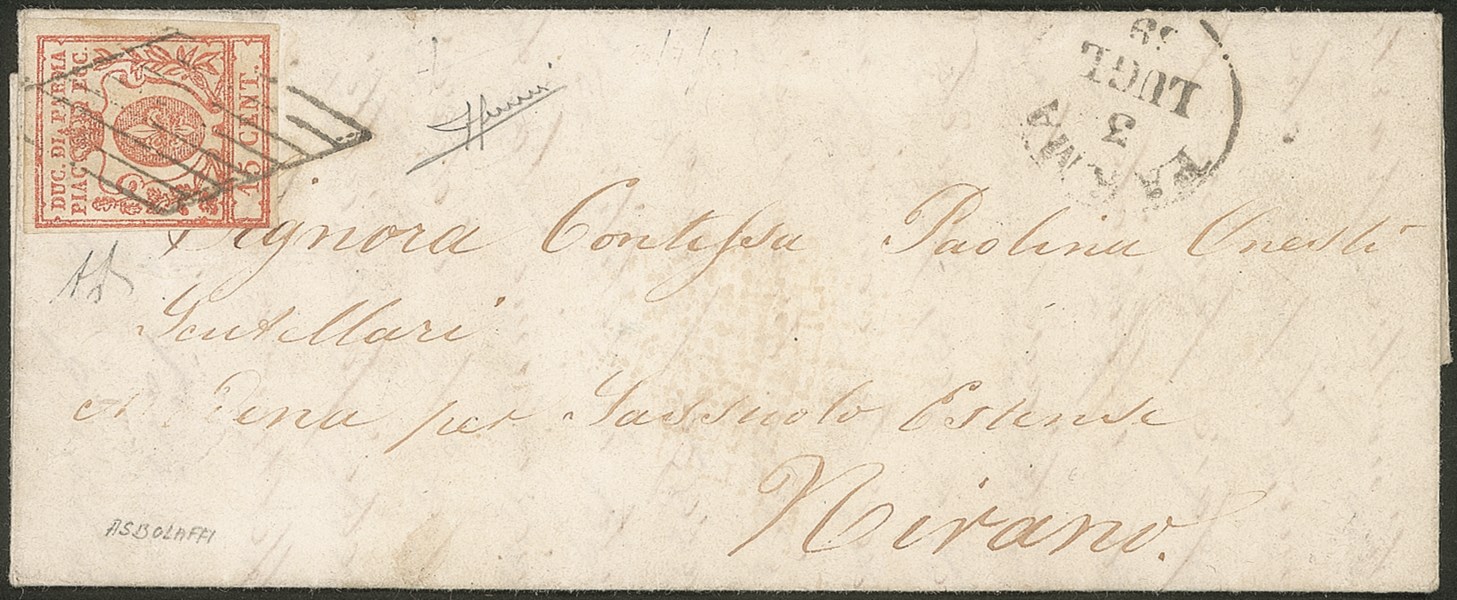 DUC. DI PARMA
PIAC. ECC.
15 CENT.
PARMA
3
LUGL
59
Signora Contessa Paolina Onesti
Scutellari
Modena per Sassuolo Estense
Nirano.
ASBOLAFFI